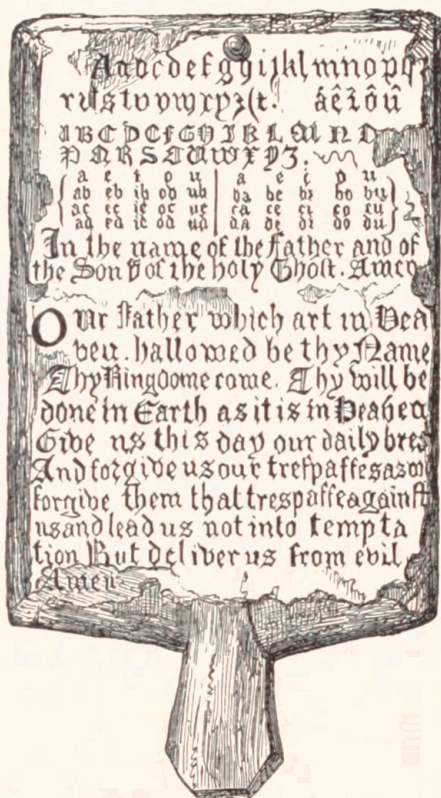 Aabcdefghijklmnopq
rſstuvwxyz&. áêîôû
ABCDEFGHIJKLMNO
PQRSTUWXYZ.
a e i o u | a e i o u
ab eb ib ob ub | ba be bi bo bu
ac ec ic oc uc | ca ce ci co cu
ad ed id od ud | da de di do du
In the name of the father and of
the Son & of the holy Ghoſt. Amen
Our Father which art in Hea
ven. hallowed be thy Name
Thy Kingdome come. Thy will be
done in Earth as it is in Heaven
Give us this day our daily bred
And forgive us our treſpaſſes as we
forgive them that treſpaſſe againſt
us and lead us not into tempta
tion But deliver us from evil
Amen.